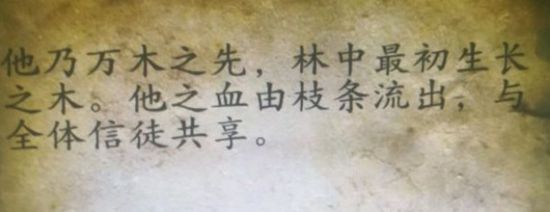 他乃万木之先，林中最初生长
之木。他之血由枝条流出，与
全体信徒共享。